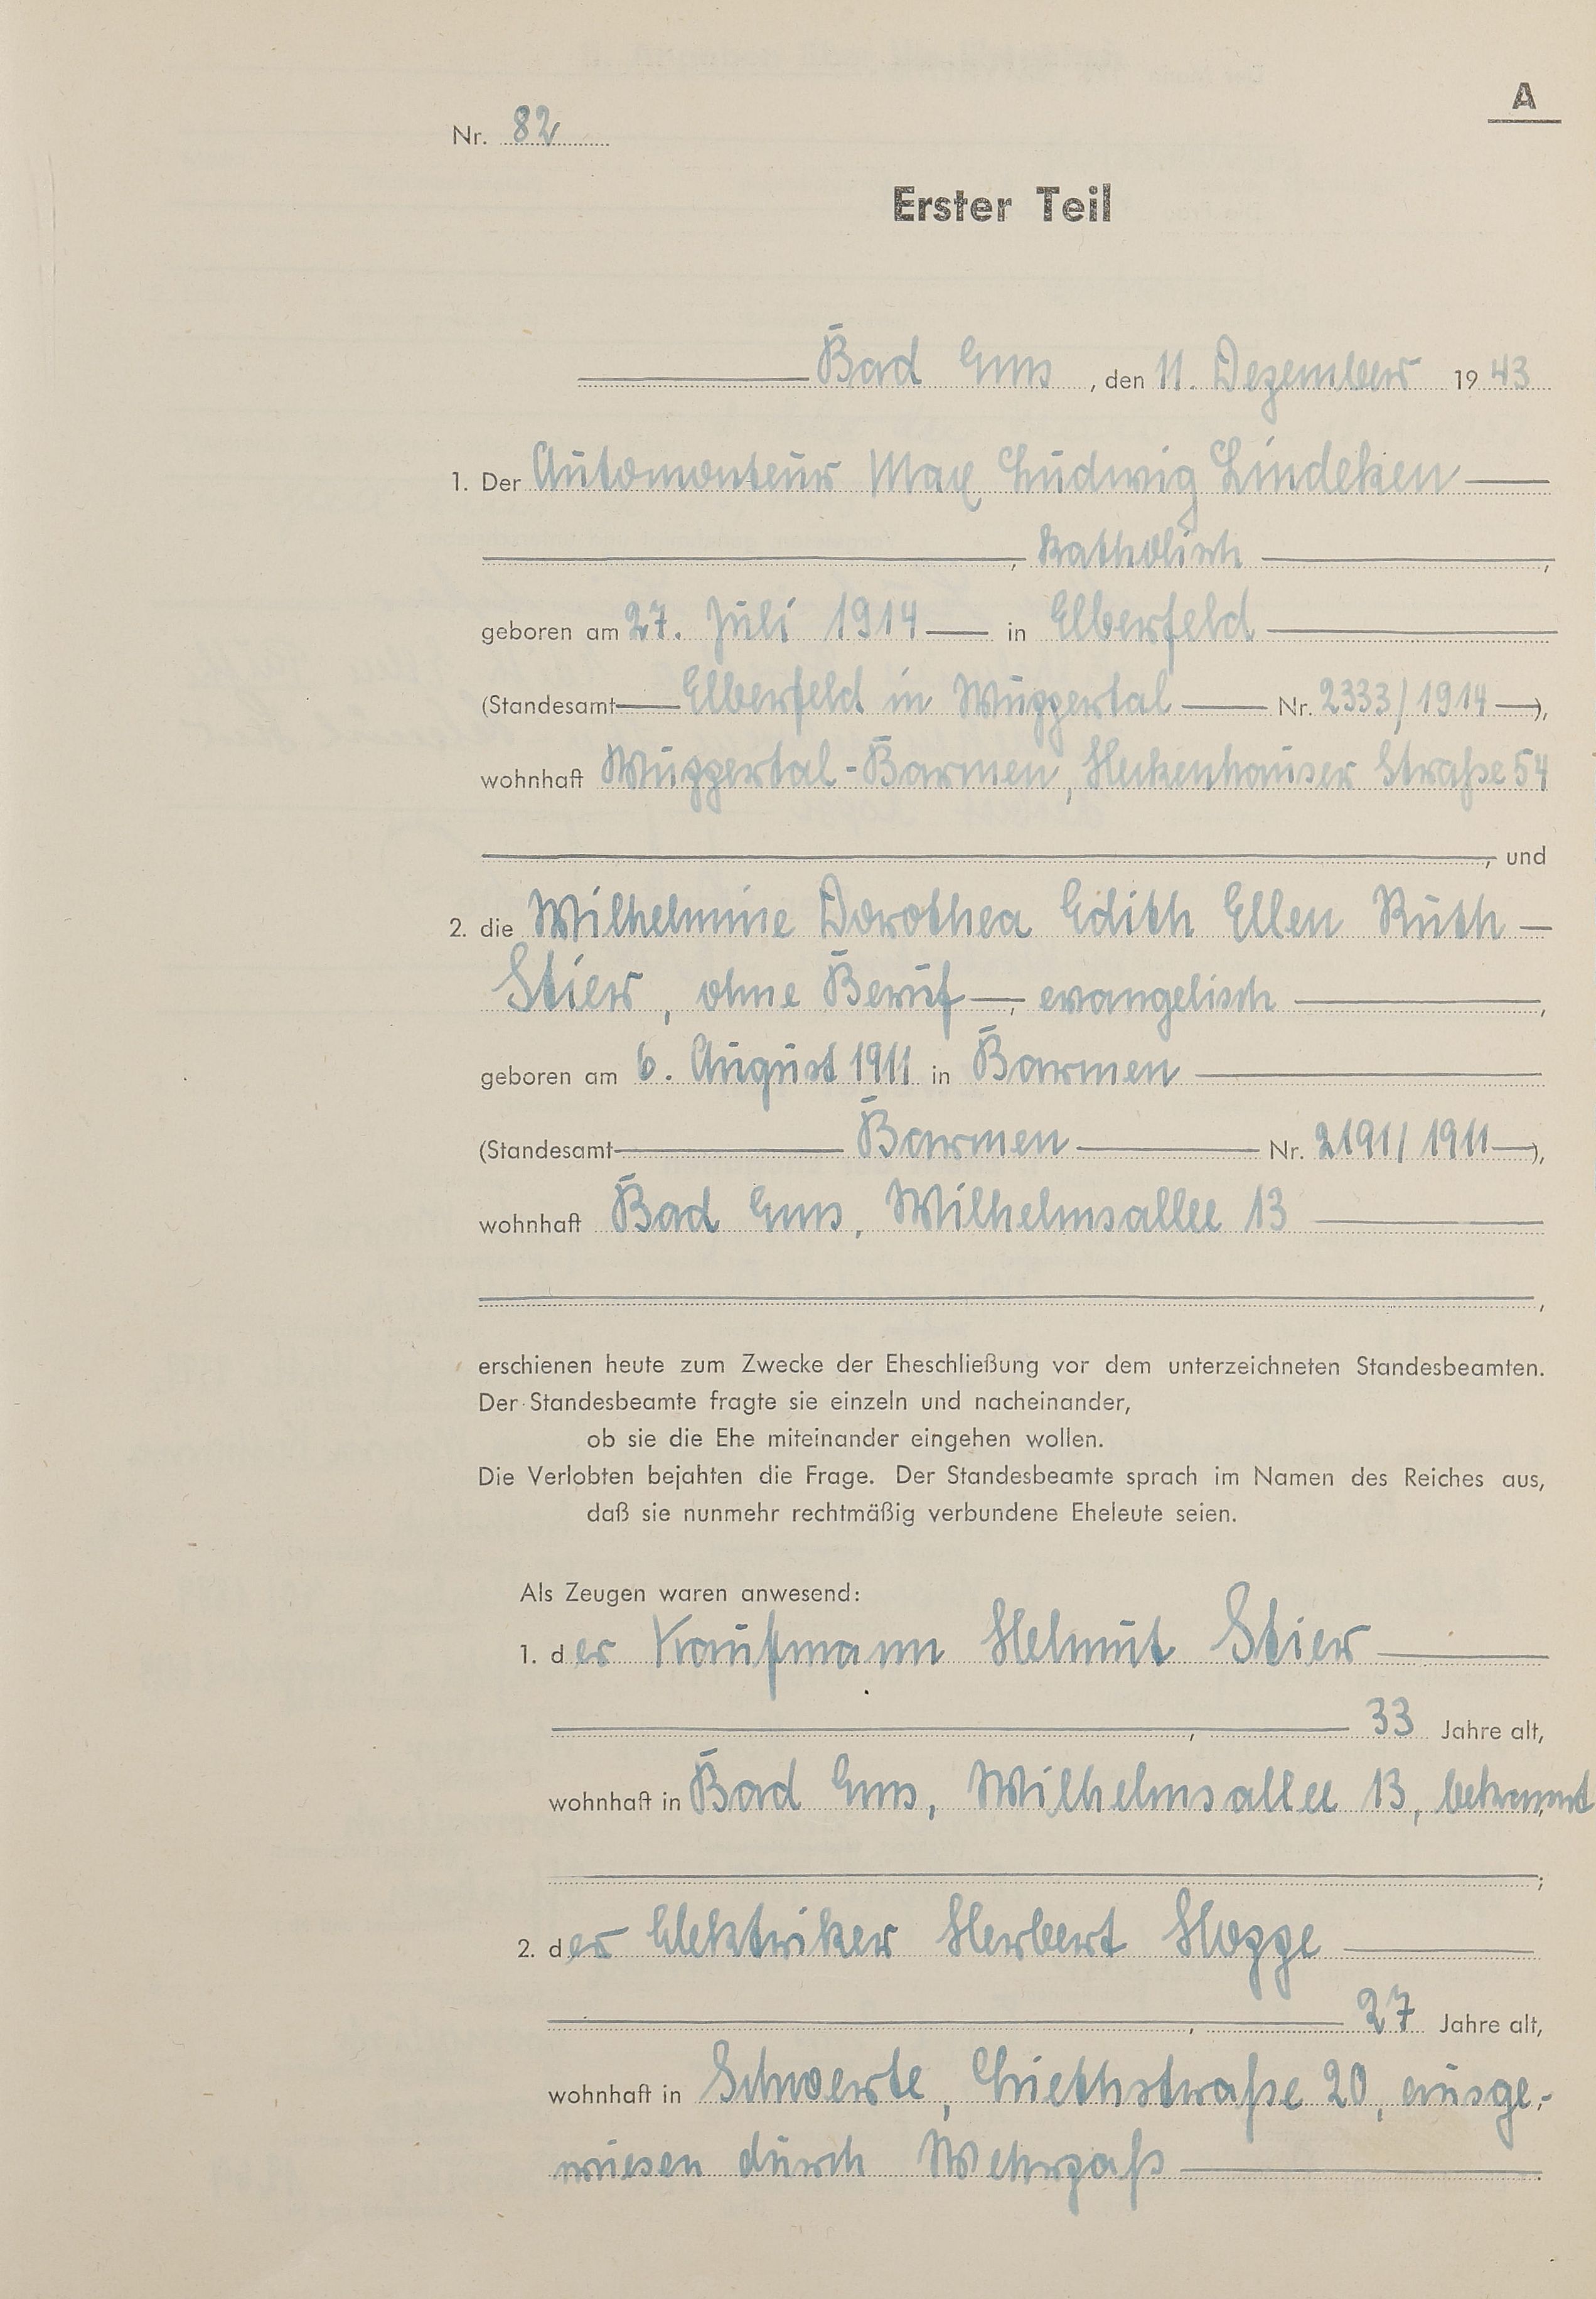 A
Nr. 82
Erster Teil
Bad Ems, den 11. Dezember 1943
1. Der Automonteur Max Ludwig Lindeken
, katholisch,
geboren am 27. Juli 1914 in Elberfeld
(Standesamt Elberfeld in Wuppertal Nr. 2333/1914),
wohnhaft Wuppertal-Barmen, Heckenhauser Straße 54
, und
2. die Wilhelmine Dorothea Edith Ellen Ruth
Stier, ohne Beruf, evangelisch,
geboren am 6. August 1911 in Barmen
(Standesamt Barmen Nr. 2191/1911),
wohnhaft Bad Ems, Wilhelmsallee 13
,
erschienen heute zum Zwecke der Eheschließung vor dem unterzeichneten Standesbeamten.
Der Standesbeamte fragte sie einzeln und nacheinander,
ob sie die Ehe miteinander eingehen wollen.
Die Verlobten bejahten die Frage. Der Standesbeamte sprach im Namen des Reiches aus,
daß sie nunmehr rechtmäßig verbundene Eheleute seien.
Als Zeugen waren anwesend:
1. der Kaufmann Helmut Stier
, 33 Jahre alt,
wohnhaft in Bad Ems, Wilhelmsallee 13, bekannt
;
2. der Elektriker Herbert Hoppe
, 27 Jahre alt,
wohnhaft in Schwerte, 20, ausge-
wiesen durch Wehrpaß